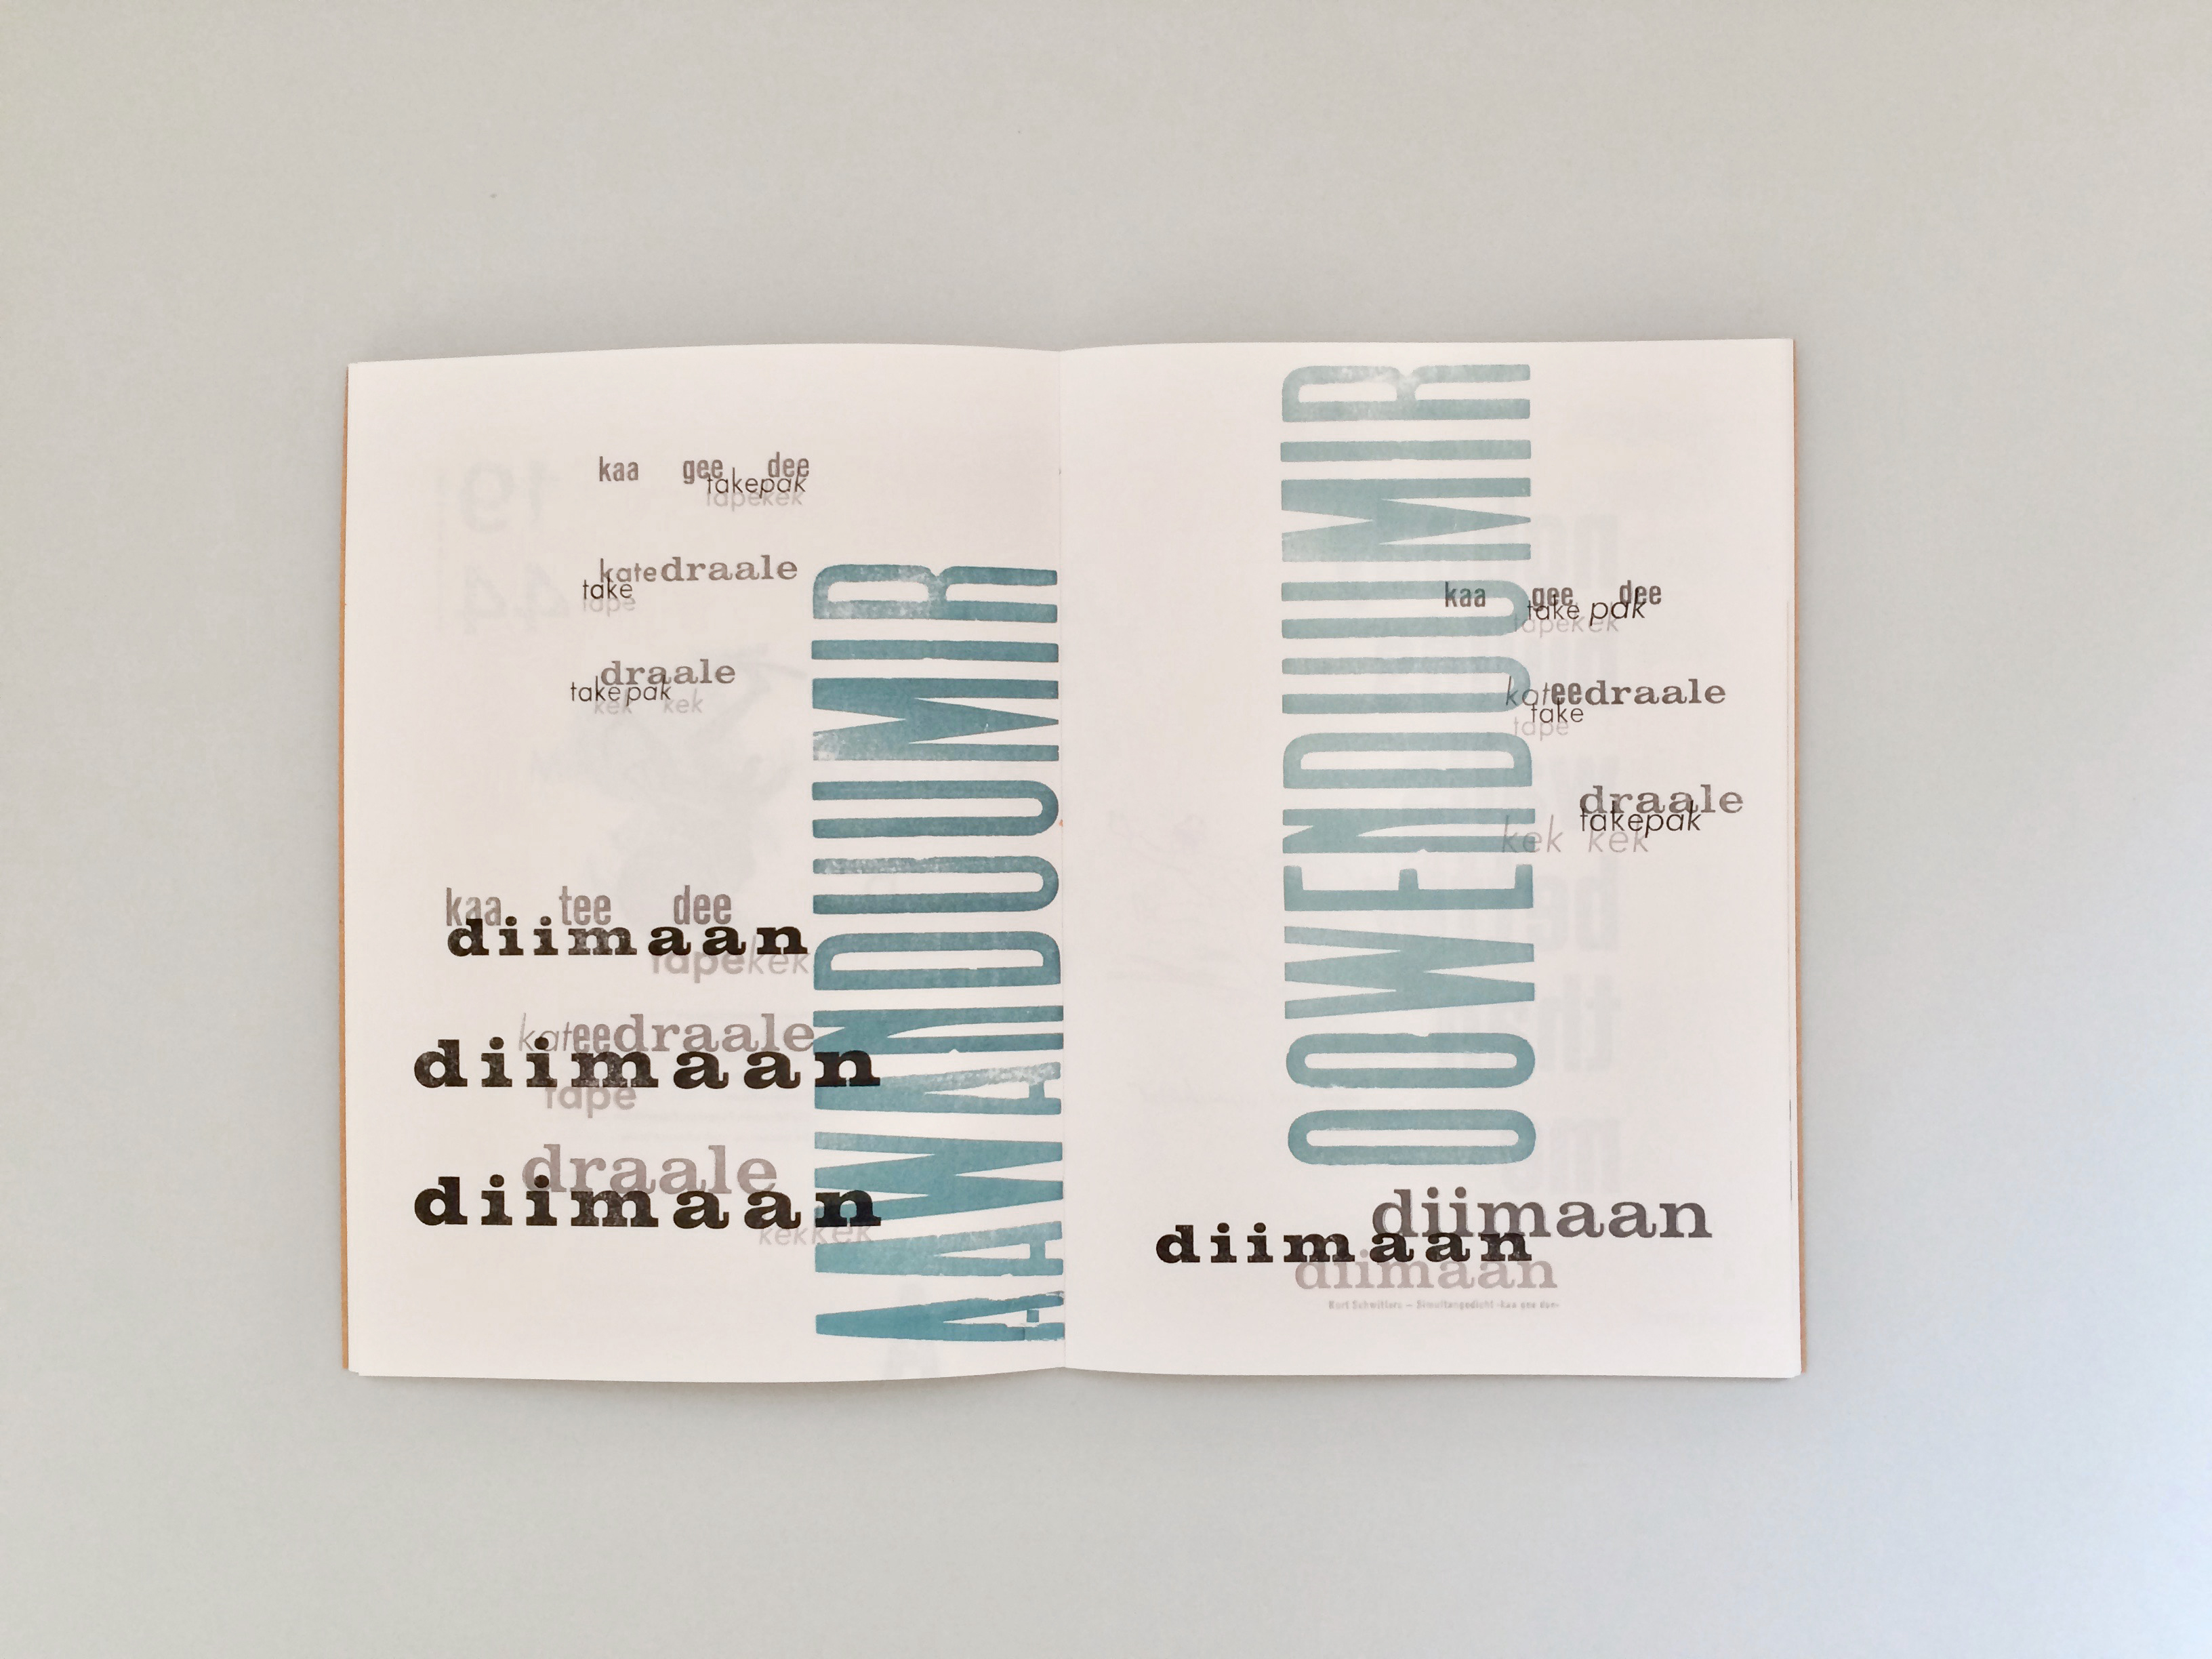 kaa gee dee
takepak
tapekek
katedraale
take
tape
draale
takepak
kek kek
kaa tee dee
diimaan
tapekek
kateedraale
diimaan
tape
draale
diimaan
kekkek
AAWANDUUMIR
OOWENDUUMIR
kaa gee dee
take pak
tapekek
kateedraale
take
tape
draale
takepak
kek kek
diimaan
diimaan
diimaan
Kurt Schwitters – Simultangedicht ‹kaa gee dee›